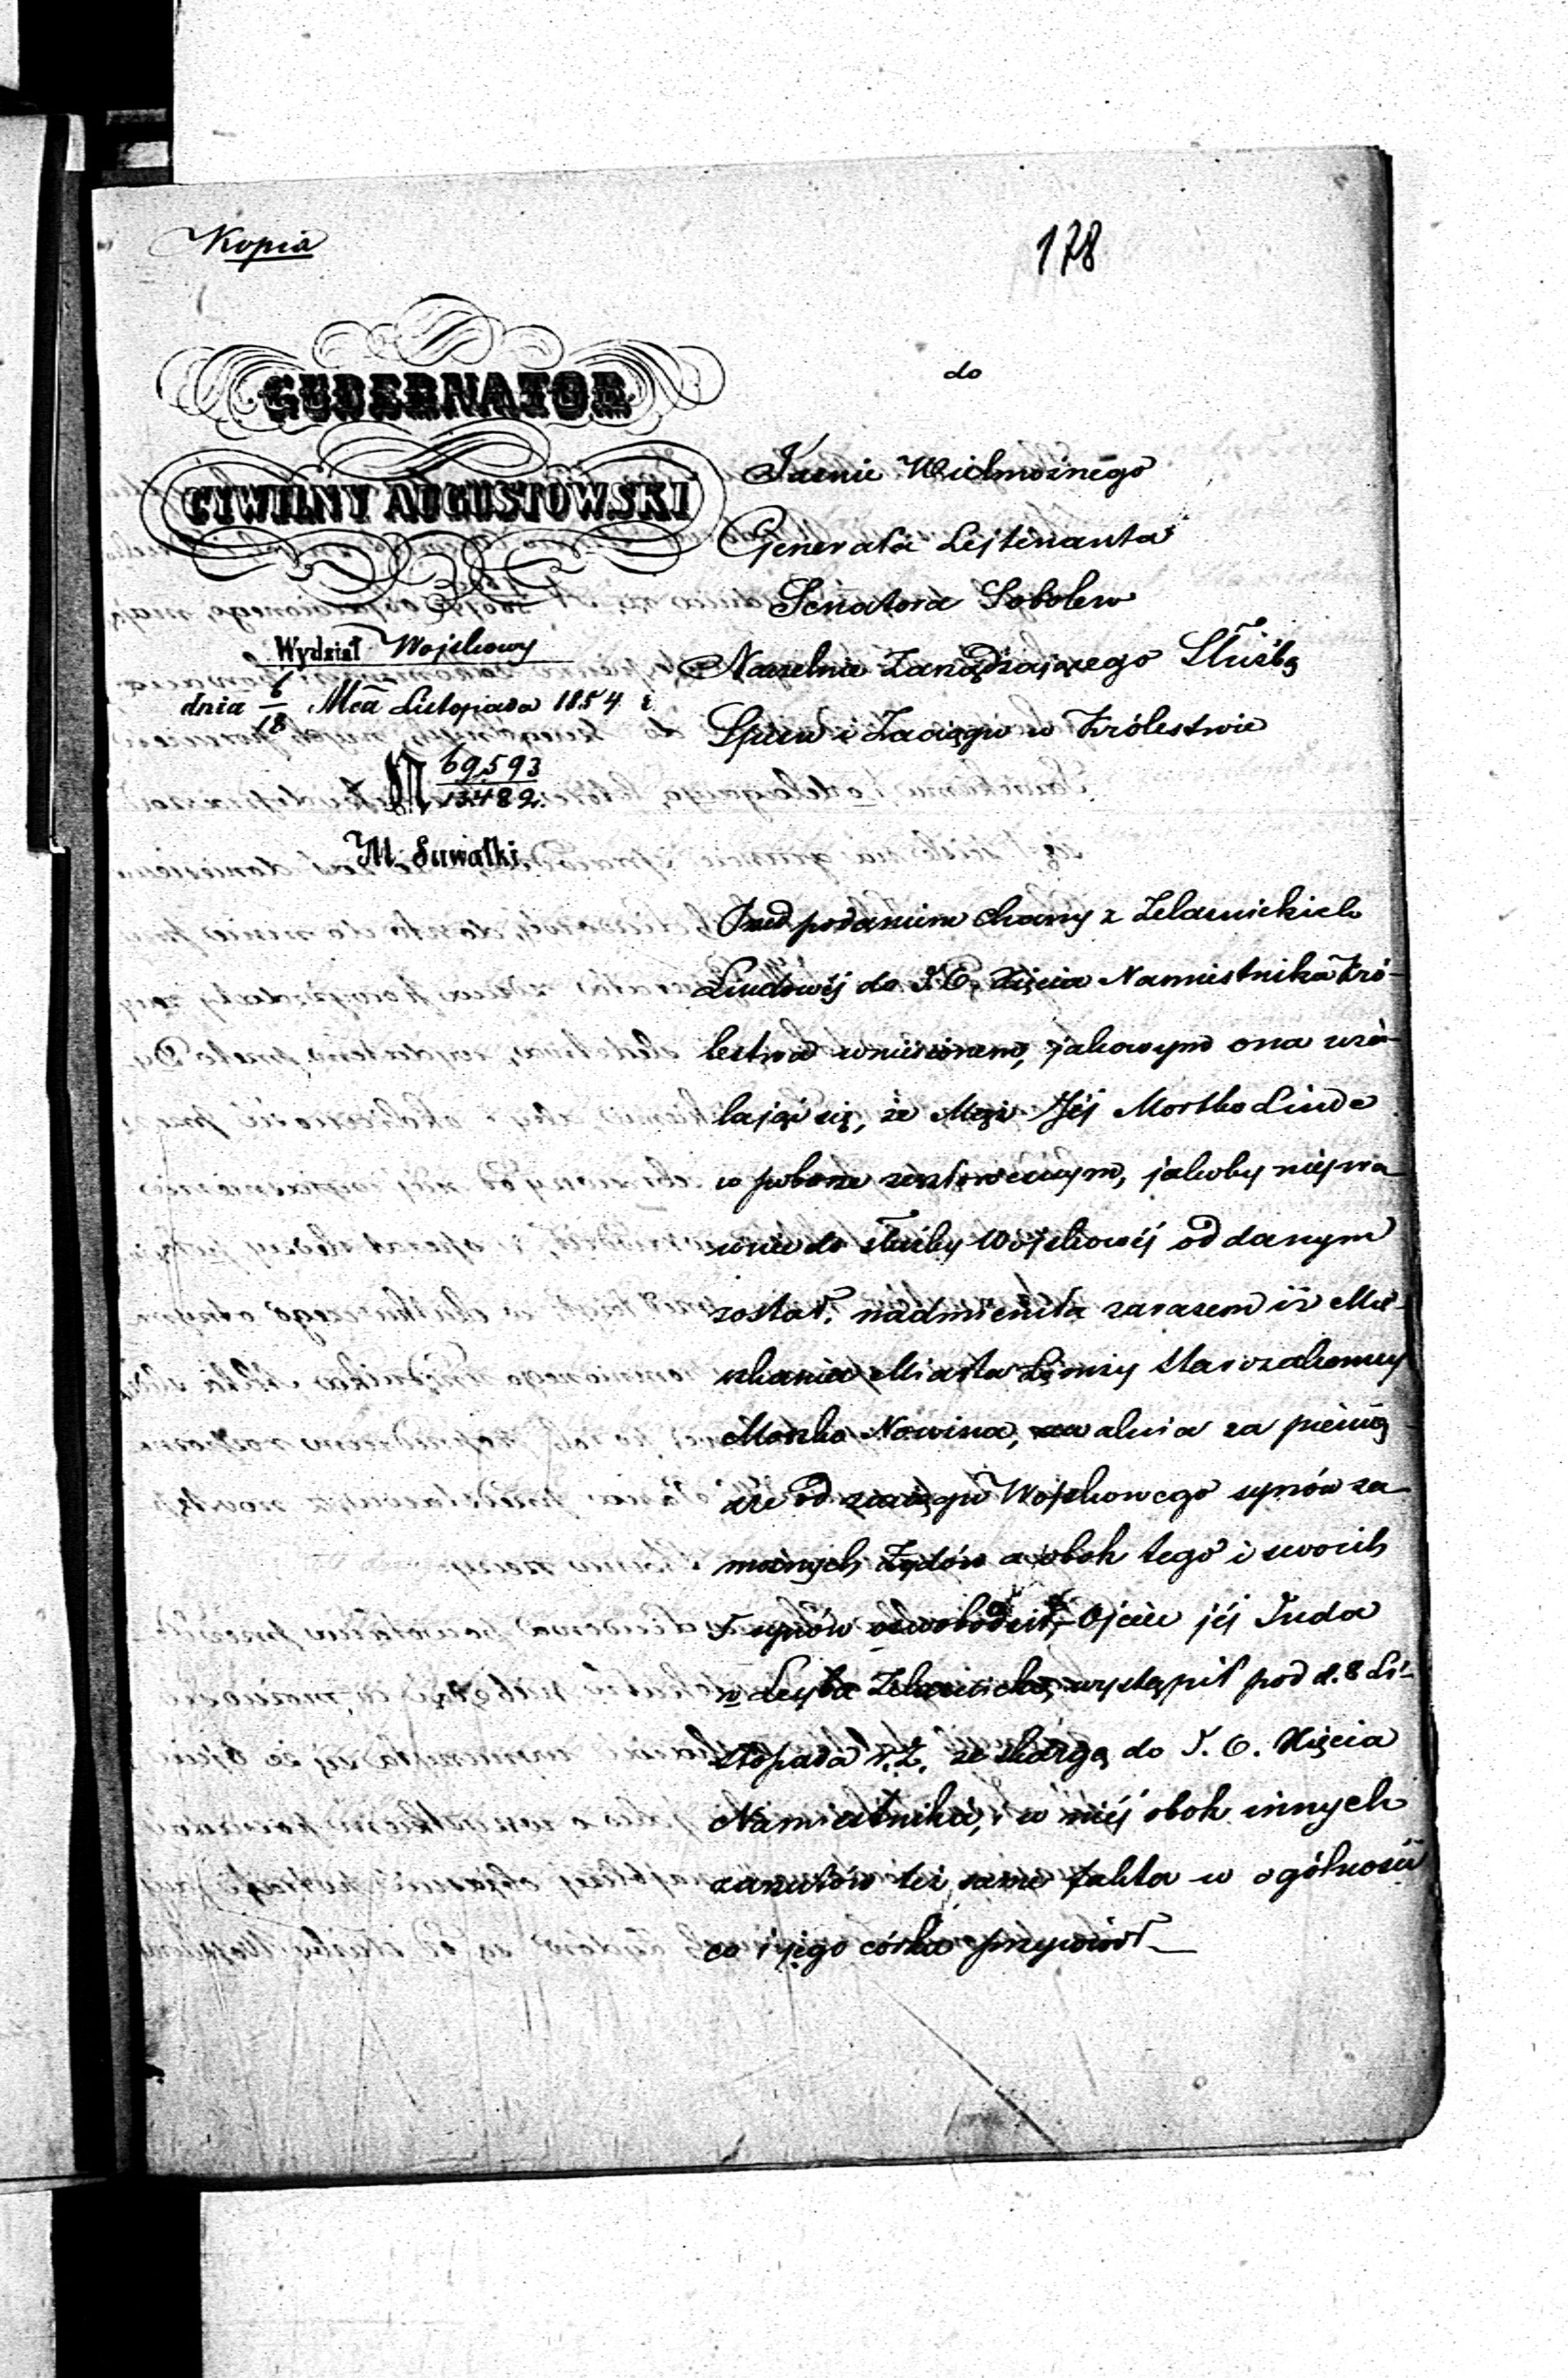 Kopia
178
GUBERNATOR
CYWILNY AUGUSTOWSKI
Wydział Wojskowy
dnia 6/18 Mca Listopada 1854 r.
N 69593/13482.
M. Suwałki.
do
Jaśnie Wielmożnego
Generała Lejtenanta
Senatora Sobolew
Naczelnie Zarządzającego Służbą
Spisu i Zaciągu w Królestwie
Przed podaniem Chany z Zelaznickich
Lindowéj do J. O. Xięcia Namiestnika Kró-
lestwa wniesionem, jakowym ona uża-
lając się, że Mąż Jéj Mortko Linde
w poborze zeszłorocznym, jakoby niepra-
wnie do służby Wojskowéj oddanym
został, nadmieniła zarazem iż Mie-
szkaniec Miasta Łomży Starozakonny
Moszko Nowina, uwalnia za pienią-
dze od zaciągu Wojskowego synów za-
możnych Żydów a obok tego i swoich
5 synów oswobodził, Ojciec jéj Juda
Leyba wystąpił pod d. 8 Li-
stopada r. z. ze skargą do J. O. Xięcia
Namiestnika, i w niéj obok innych
zarzutów też same fakta w ogólności
co i jego córka przywiódł.